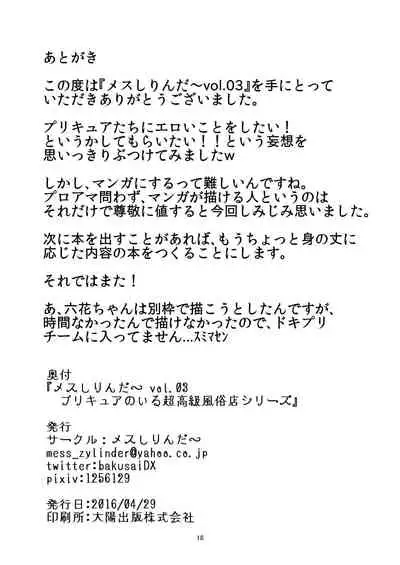 あとがき
この度は『メスしりんだ～vol.03』を手にとって
いただきありがとうございました。
プリキュアたちにエロいことをしたい！
というかしてもらいたい！！という妄想を
思いっきりぶつけてみましたw
しかし、マンガにするって難しいんですね。
プロアマ問わず、マンガが描ける人というのは
それだけで尊敬に値すると今回しみじみ思いました。
次に本を出すことがあれば、もうちょっと身の丈に
応じた内容の本をつくることにします。
それではまた！
あ、六花ちゃんは別枠で描こうとしたんですが、
時間なかったんで描けなかったので、ドキプリ
チームに入ってません...ｽﾐﾏｾﾝ
奥付
『メスしりんだ～ vol.03
プリキュアのいる超高級風俗店シリーズ』
発行
サークル：メスしりんだ～
mess_zylinder@yahoo.co.jp
twitter:bakusaiDX
pixiv:1256129
発行日:2016/04/29
印刷所:大陽出版株式会社
18